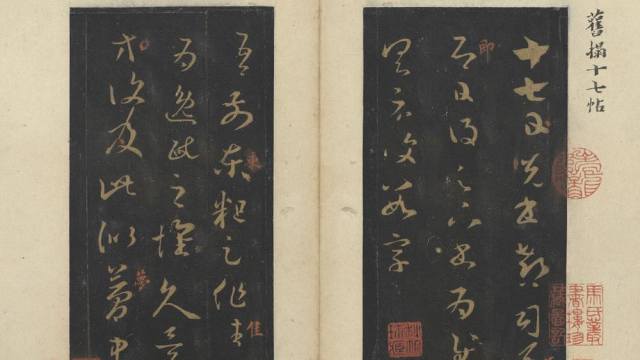 舊搨十七帖
十七日先書郗司馬
即日得足下書為慰
具示復數字
吾前東粗足作佳
為逸民之懷久矣
方復及此似夢中
即
東
佳
夢